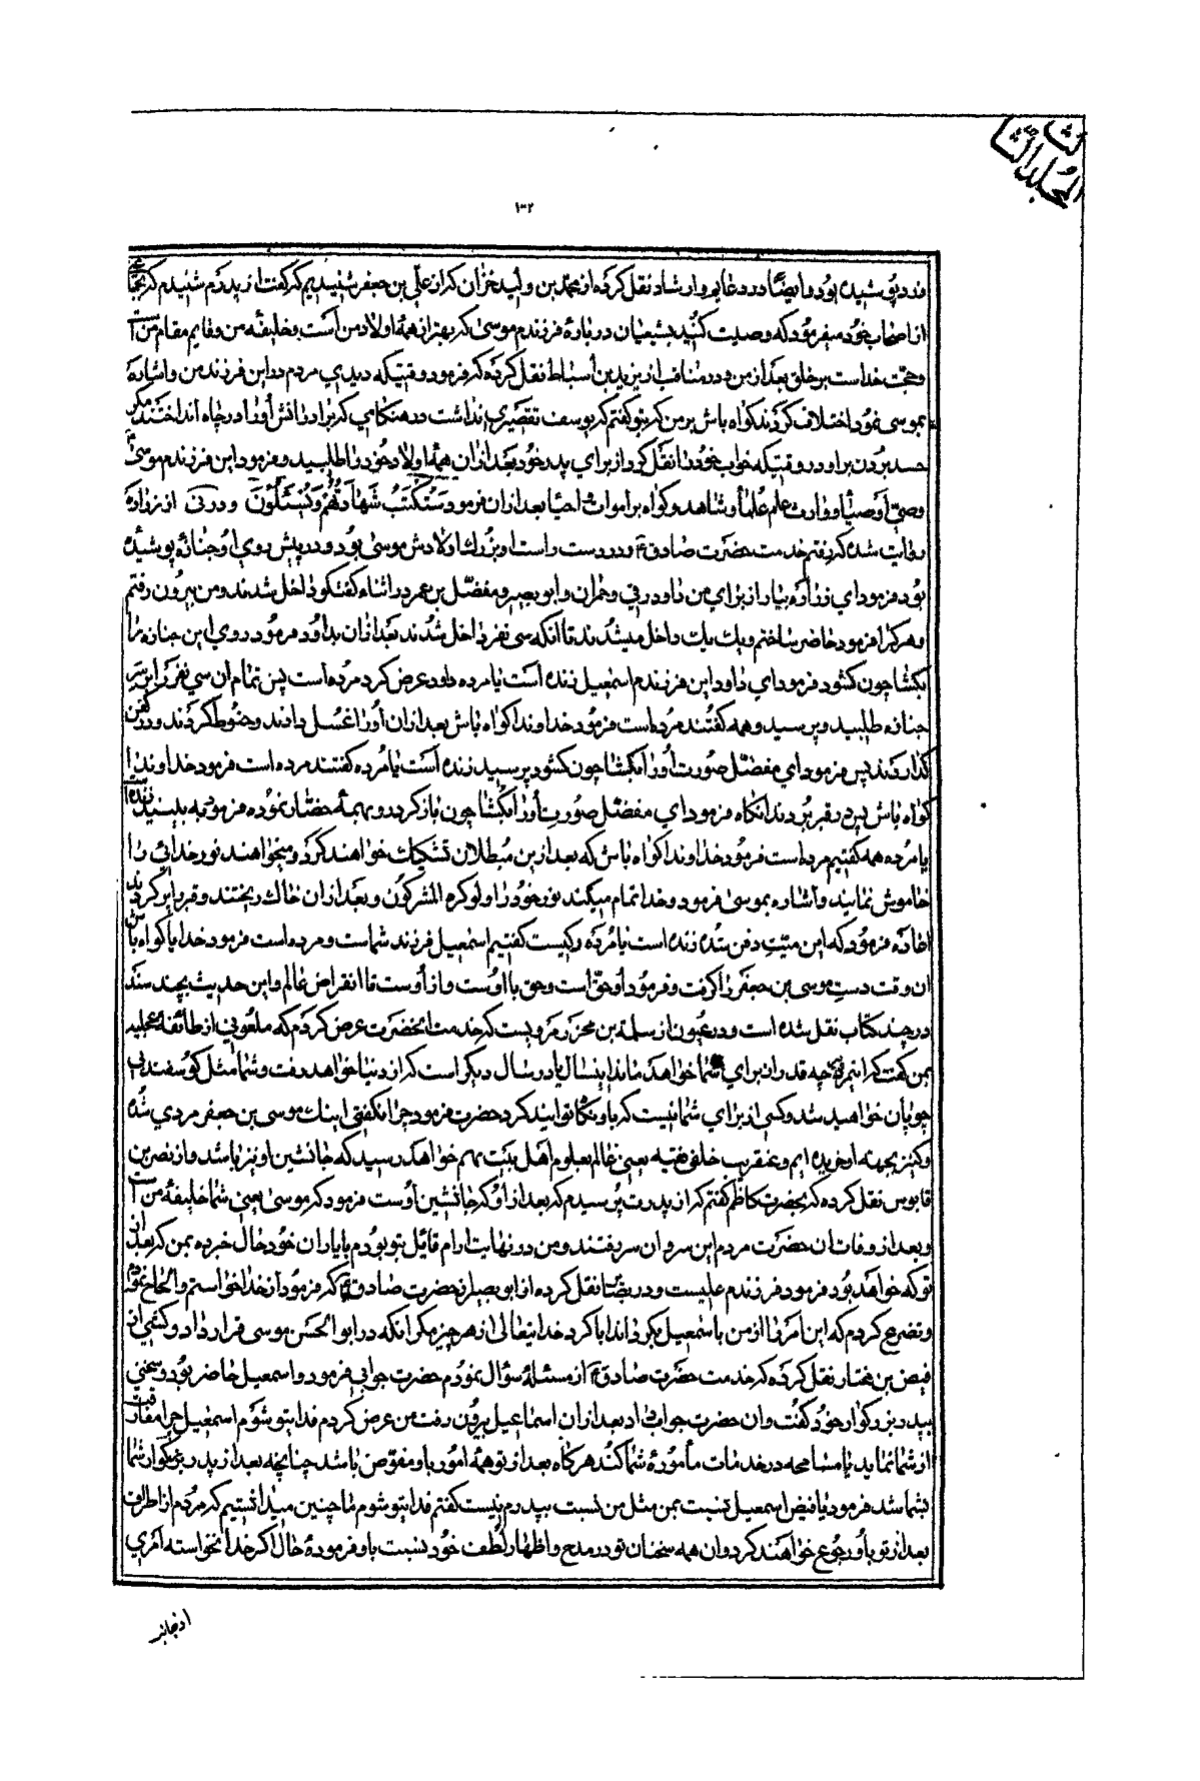 المجلد الثالث
۱۳۲
و ایضا در و ارشاد نقل کرده از محمد بن ولید خزان که از علی بن جعفر شنیدیم که گفت از پدرم شنیدم که
از اصحاب خود میفرمود که وصیت کنید بشیعیان در باره فرزندم موسی که بهتر از همه اولاد من است و خلیفه من و قایم مقام من است
و حجت خداست بر خلق بعد از من و در مناقب از یزید بن اسباط نقل کرده که فرمود وقتیکه دیدی مردم در این فرزند من و اشاره
بموسی نمود اختلاف کردند گواه باش بر من که بتو گفتم که یوسف تقصیری نداشت در هنگامی که برادرانش او را در چاه انداختند مگر
حسد بردن بر او در وقتیکه خواب خود را نقل کرد از برای پدر خود بعد از آن همه اولاد خود را طلبید و فرمود این فرزندم موسی
وصی اوصیا و وارث علم علما و شاهد و گواه بر اموات احیا بعد از آن فرمود ستکتب شهادتهم و یسئلون و در از زراره
روایت شده که رفتم خدمت حضرت صادق و در دست راست او بزرک اولادش موسی بود و در پیش روی او جنازه پوشیده
بود فرمود ای زراره بیار از برای من داود رقی و حمران و ابو بصیر و مفضل بن عمر در اثناء گفتگو داخل شدند و من بیرون رفتم
و هر که را فرمود حاضر ساختم و یک یک داخل میشدند تا آنکه سی نفر داخل شدند بعد از آن بداود فرمود روی این جنازه را
بگشا چون گشود فرمود ای داود این فرزندم اسمعیل زنده است یا مرده داود عرض کرد مرده است پس تمام ان سی نفر را بر سر
جنازه طلبید و پرسید و همه گفتند مرده است فرمود خداوندا گواه باش بعد از ان او را غسل دادند و حنوط کردند و در کفن
گذاردند پس فرمود ای مفضل صورت او را بگشا چون گشود پرسید زنده است یا مرده گفتند مرده است فرمود خداوندا
گواه باش پس در قبر بردند آنگاه فرمود ای مفضل صورت او را بگشا چون باز کرد رو بهمه حضار نموده فرمود به بینید زنده است
یا مرده همه گفتیم مرده است فرمود خداوندا گواه باش که بعد از ین مبطلان تشکیک خواهند کرد و میخواهند نور خدائی را
خاموش نمایند و اشاره بموسی فرمود و خدا تمام میکند نور خود را و لو کره المشرکون و بعد از ان خاک ریختند و قبر را پر کردند
اعاده فرمود که این میت دفن شده زنده است یا مرده و کیست گفتیم اسمعیل فرزند شماست و مرده است فرمود خدایا گواه باش
ان وقت دست موسی بن جعفر را گرفت و فرمود او حق است و حق با اوست و از اوست تا انقراض عالم و این حدیث بچند سند
در چند کتاب نقل شده است و در عیون از سلمة بن محرز مرویست که خدمت انحضرت عرض کردم که ملعونی از طائفه عجلیه
بمن گفت که این مرد چه قدر از برای شما خواهد ماند اینسال یا در سال دیگر است که از دنیا خواهد رفت و شما مثل گوسفند بی
چوپان خواهید شد و کسی از برای شما نیست که باو نگاه توانید کرد حضرت فرمود چرا نگفتی اینک موسی بن جعفر مردی شده
و کنیز بجهته او خریده ایم و عنقریب خلفی فقیه یعنی عالم بعلوم اهل بیت بهم خواهد رسید که جانشین او نیز باشد و از نصر بن
قابوس نقل کرده که بحضرت کاظم گفتم که از پدرت پرسیدم که بعد از او که جانشین اوست فرمود که موسی یعنی شما خلیفه من است
و بعد از وفات ان حضرت مردم این سر و ان سر رفتند و من در نهایت ارام قائل بتو بودم با یاران خود حال خبر ده بمن که بعد از
تو که خواهد بود فرمود فرزندم علیست و در نقل کرده از ابو بصیر از حضرت صادق که فرمود از خدا خواستم و الحاح نمودم
و تضرع کردم که این امر را از من با اسمعیل بگرداند ابا کرد خدایتعالی از هر چیز مگر انکه در ابو الحسن موسی قرار داد و کشی از
فیض بن مختار نقل کرده که خدمت حضرت صادق از مسئله سؤال نمودم حضرت جوابی فرمود و اسمعیل حاضر بود و سخنی
بپدر بزرگوار خود گفت و ان حضرت جواب داد بعد از ان اسماعیل بیرون رفت من عرض کردم فدایتو شوم اسمعیل چرا مفارقت
از شما نماید یا مسامحه در خدمات مأموره شما کند هر گاه بعد از تو همه امور باو مفوض باشد چنانچه بعد از پدر بزرگوار شما
بشما شد فرمود یا فیض اسمعیل نسبت بمن مثل من نسبت بپدرم نیست گفتم فدایتو شوم ما چنین میدانستیم که مردم از اطراف
بعد از تو باو رجوع خواهند کرد و ان همه سخنان تو در مدح و اظهار لطف خود نسبت باو فرموده حال اگر خدا نخواسته امری